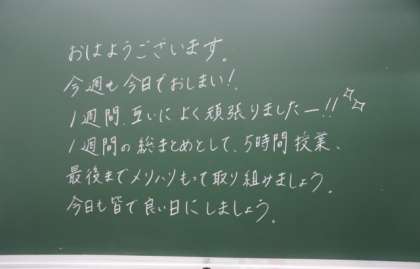 おはようございます。
今週も今日でおしまい!
1週間、互いによく頑張りましたー!!
1週間の総まとめとして、5時間授業、
最後までメリハリもって取り組みましょう。
今日も皆で良い日にしましょう。